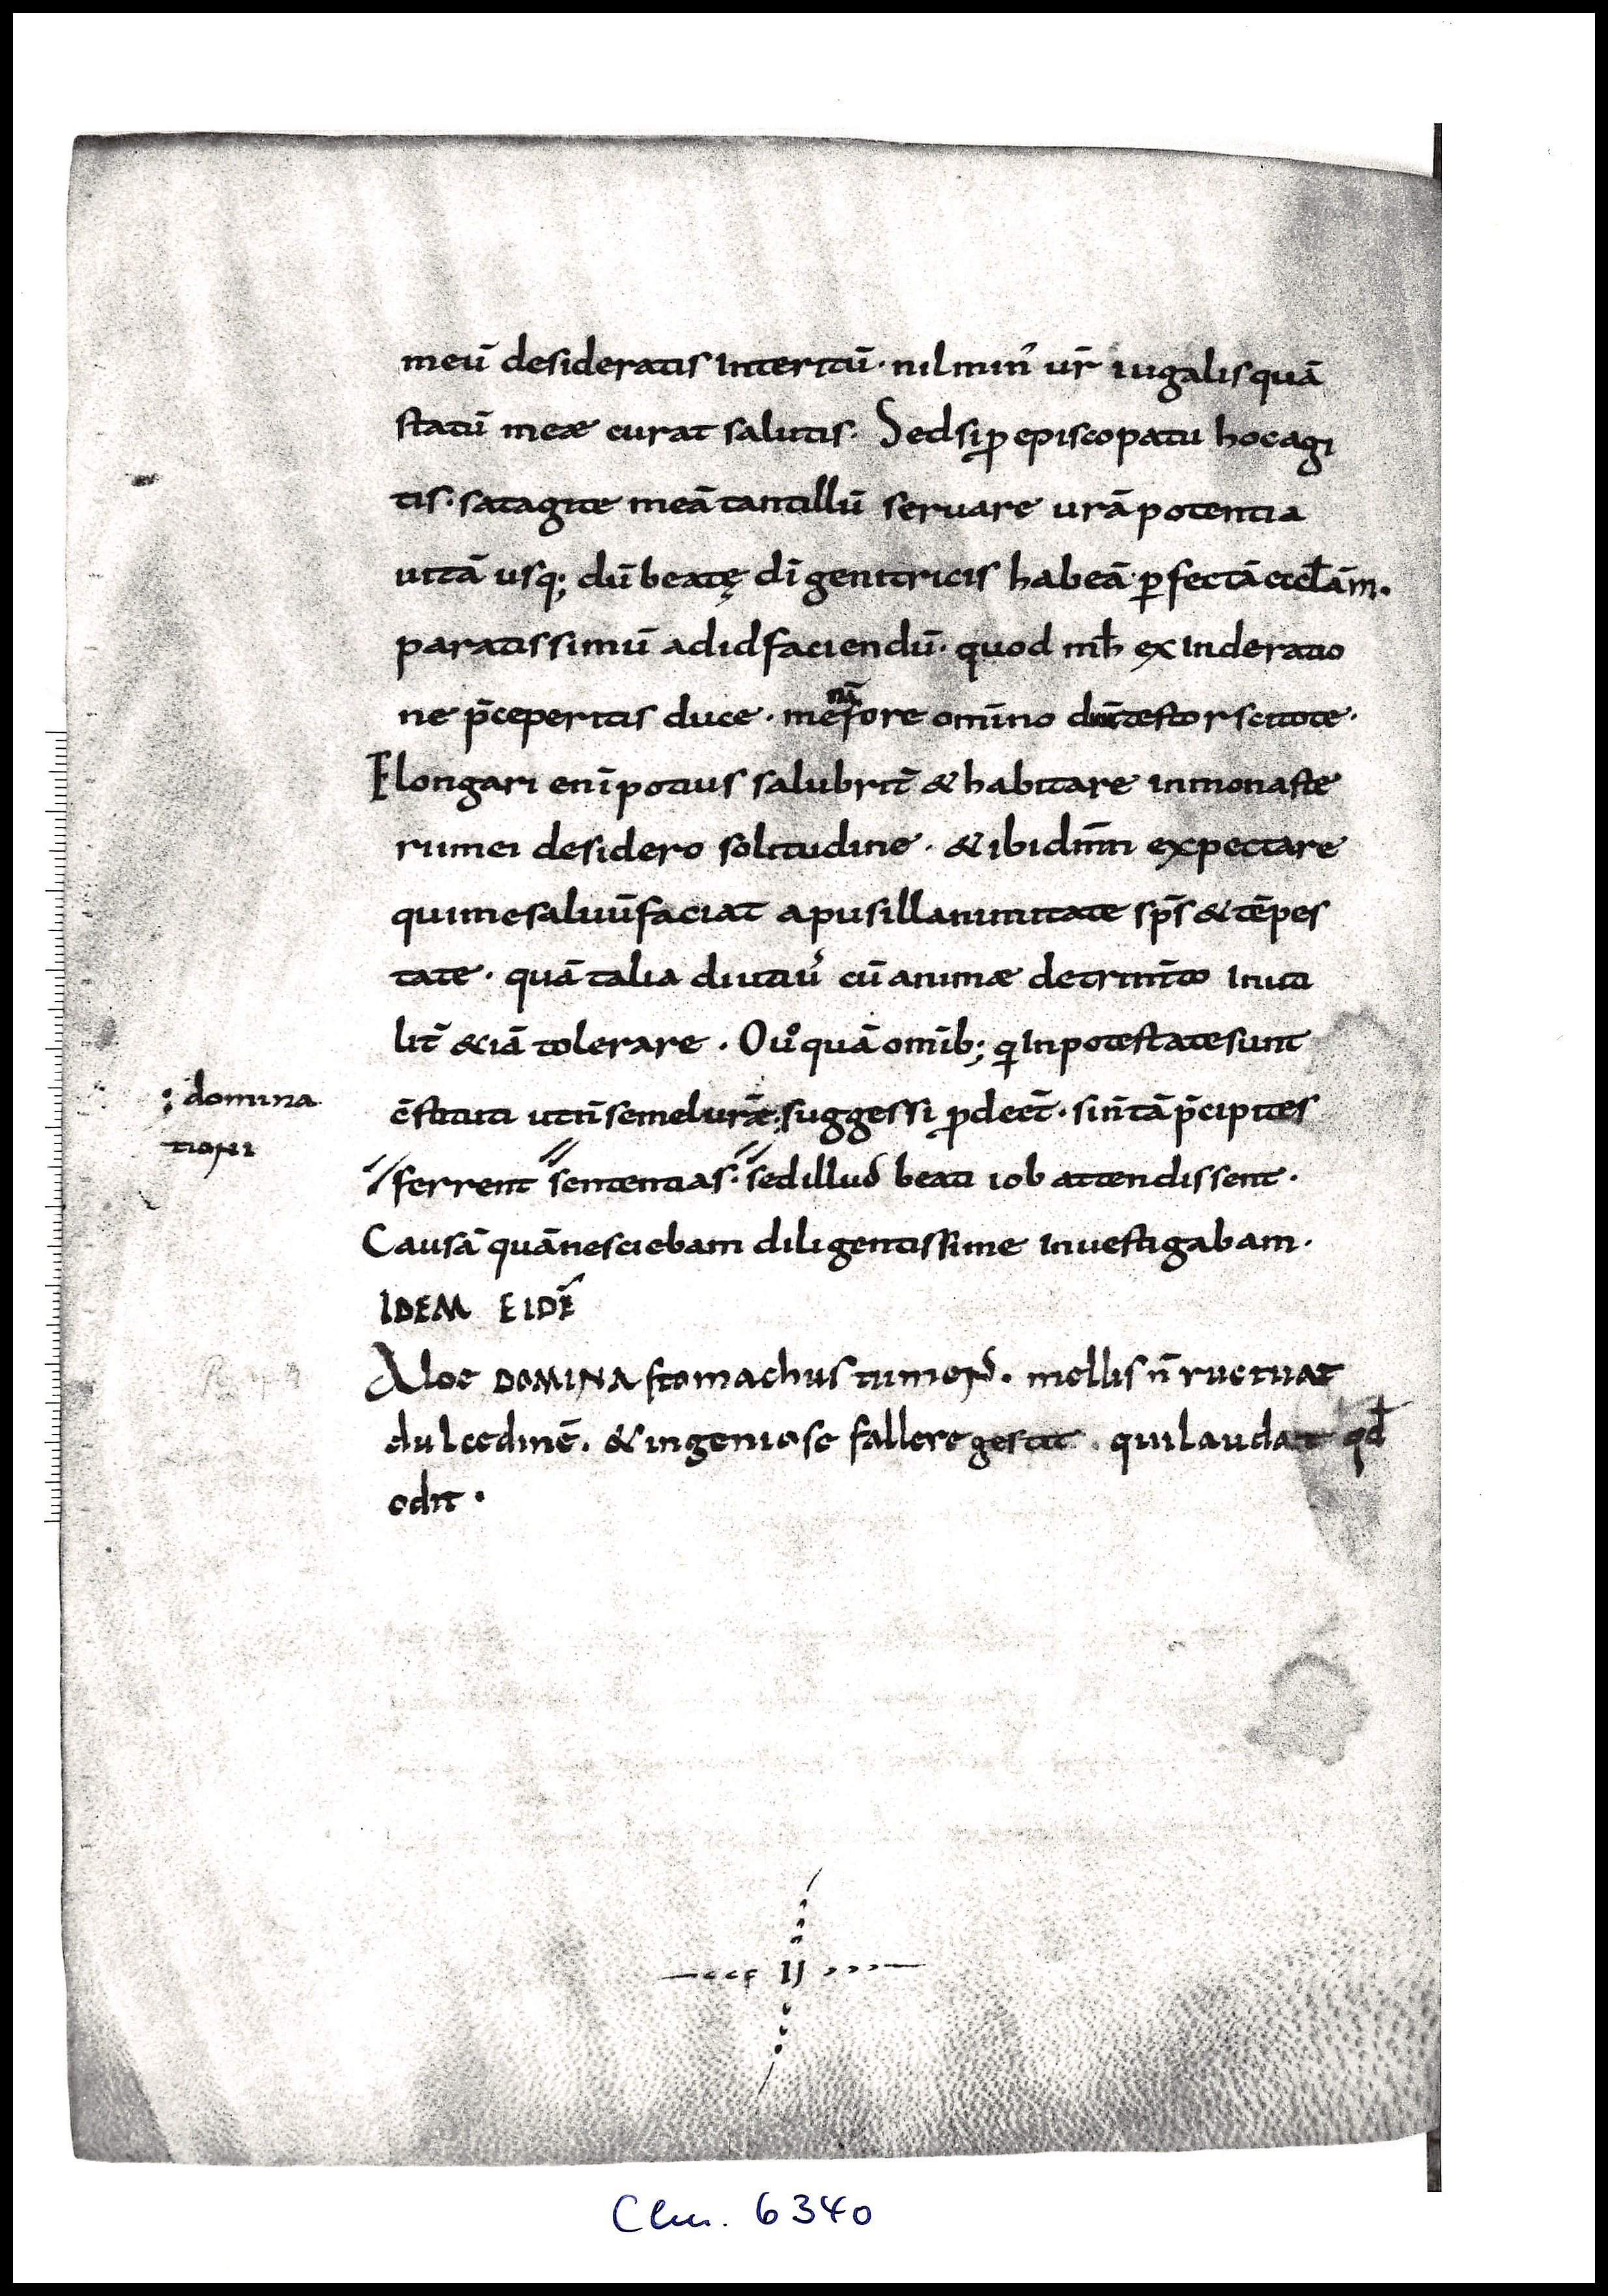 meū desideratis interitū· nil min᾿ ur̄ iugalis quā
statū meæ curat salutis· Sed si ꝓ episcopatu hoc agi
tis· satagite meā tantillū seruare urā potentia
uitā usq; dū beatę dī genitricis habeā ꝑfectā ęccłam·
paratissimū ad id faciendū· quod mħ exinde ratio
ne p̄ceperitis duce· me nā fore omīno testor scitote·
Elongari enī potius salubrit̄ & habitare in monaste
rii mei desidero solitudine· & ibi dn̄m expectare
qui me saluū faciat a pusillanimitate sp̄s & tēpes
tate· quā talia diutiu᾿ cū animæ detrim̄to inuti
lit̄ &iā tolerare· Ouͦ quā omīb; qͥ in potestate sunt
c̄stituti uti n̄ semel uræ; suggessi ꝓdeēt· si n̄ tā p̄cipites
ferrent sententias· sed illud beati iob attendissent·
Causā quā nesciebam diligentissime inuestigabam·
; domina
tioni
IDEM EIDĒ
Aloe DOMINA stomachus tumens· mellis n̄ ructuat
dulcedinē· & ingeniose fallere gestit· qui laudat qđ
odit·
II
Clm. 6340